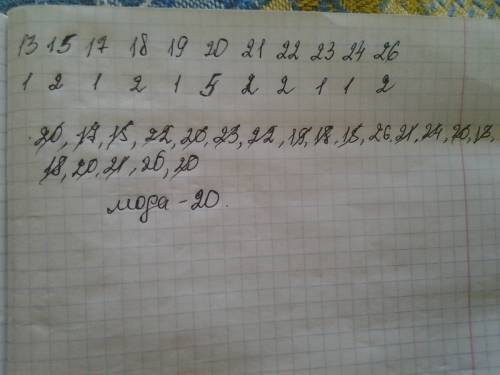 13 15 17 18 19 20 21 22 23 24 26
1 2 1 2 1 5 2 2 1 1 2
20, 17, 15, 22, 20, 23, 22, 19, 18, 15, 26, 21, 24, 20, 13,
18, 20, 21, 26, 20
мода - 20.